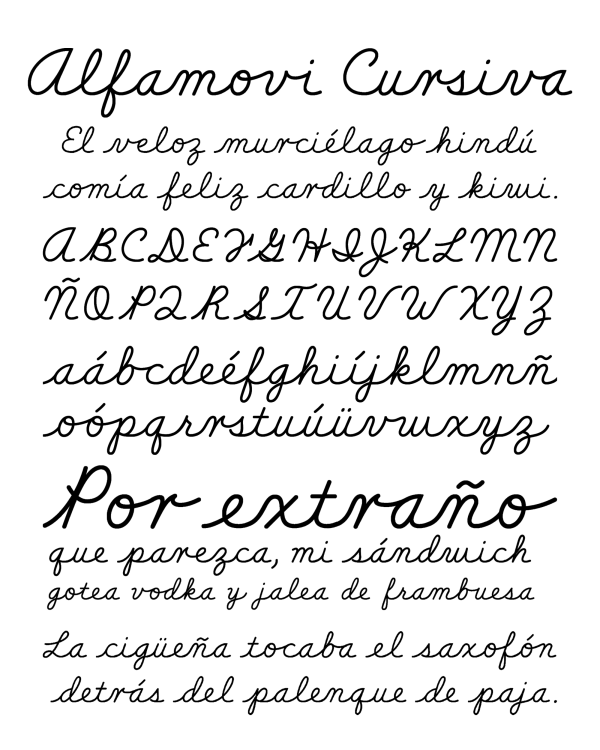 Alfamovi Cursiva
El veloz murciélago hindú
comía feliz cardillo y kiwi.
ABCDEFGHIJKLMN
ÑOPQRSTUVWXYZ
aábcdeéfghiíjklmnñ
oópqrrstuúüvwxyz
Por extraño
que parezca, mi sándwich
gotea vodka y jalea de frambuesa
La cigüeña tocaba el saxofón
detrás del palenque de paja.